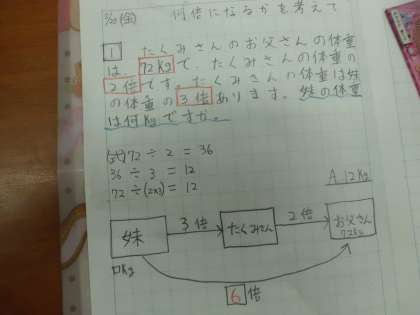 何倍になるかを考えて
1 たくみさんのお父さんの体重
は、72kgで、たくみさんの体重の
2倍です。たくみさんの体重は妹
の体重の3倍あります。妹の体重
は何kgですか。
(式) 72 ÷ 2 = 36
36 ÷ 3 = 12
72 ÷ (2×3) = 12
A. 12kg
妹 3倍 たくみさん 2倍 お父さん
72kg
□kg
6倍